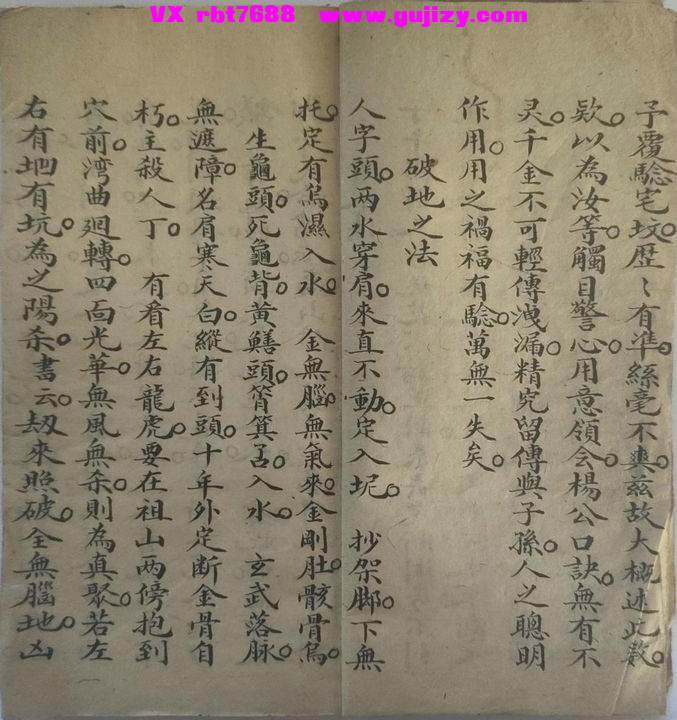 VX rbt7688 www.gujizy.com
予覆騐宅坟歴〻有準絲毫不爽茲故大概述此数
欵以為汝等觸目警心用意領会楊公口訣無有不
灵千金不可輕傳洩漏精究留傳與子孫人之聰明
作用用之禍福有騐萬無一失矣
破地之法
人字頭两水穿肩來直不動定入坭 抄架脚下無
托定有烏濕入水 金無腦無氣來金剛肚骸骨烏
生龜頭死龜背黄鱔頭筲箕舌入水 玄武落脉
無遮障名肩寒天白縱有到頭十年外定断金骨自
朽主殺人丁 有看左右龍虎要在祖山两傍抱到
穴前湾曲廻轉四靣光華無風無杀則為真聚若左
右有坳有坑為之陽杀書云刼來照破全無腦地凶